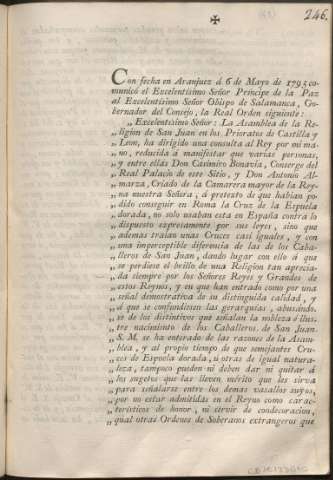 ✠
246.
Con fecha en Aranjuez á 6 de Mayo de 1793 co-
municó el Excelentísimo Señor Príncipe de la Paz
al Excelentísimo Señor Obispo de Salamanca, Go-
bernador del Consejo, la Real Orden siguiente:
„Excelentísimo Señor: La Asamblea de la Re-
„ligion de San Juan en los Prioratos de Castilla y
„Leon, ha dirigido una consulta al Rey por mi ma-
„no, reducida á manifestar que varias personas,
„y entre ellas Don Casimiro Bonavia, Conserge del
„Real Palacio de ese Sitio, y Don Antonio Al-
„marza, Criado de la Camarera mayor de la Rey-
„na nuestra Señora, á pretexto de que habian po-
„dido conseguir en Roma la Cruz de la Espuela
„dorada, no solo usaban esta en España contra lo
„dispuesto expresamente por sus leyes, sino que
„ademas traían unas Cruces casi iguales, y con
„una imperceptible diferencia de las de los Caba-
„lleros de San Juan, dando lugar con ello á que
„se perdiese el brillo de una Religion tan aprecia-
„da siempre por los Señores Reyes y Grandes de
„estos Reynos, y en que han entrado como por una
„señal demostrativa de su distinguida calidad, y
„á que se confundiesen las gerarquías, abusándo-
„se de los distintivos que señalan la nobleza é ilus-
„tre nacimiento de los Caballeros de San Juan.
„S. M. se ha enterado de las razones de la Asam-
„blea, y al propio tiempo de que semejantes Cru-
„ces de Espuela dorada, ú otras de igual natura-
„leza, tampoco pueden ni deben dar ni quitar á
„los sugetos que las lleven mérito que les sirva
„para señalarse entre los demas vasallos suyos,
„por no estar admitidas en el Reyno como carac-
„terísticos de honor, ni servir de condecoracion,
„qual otras Ordenes de Soberanos extrangeros que